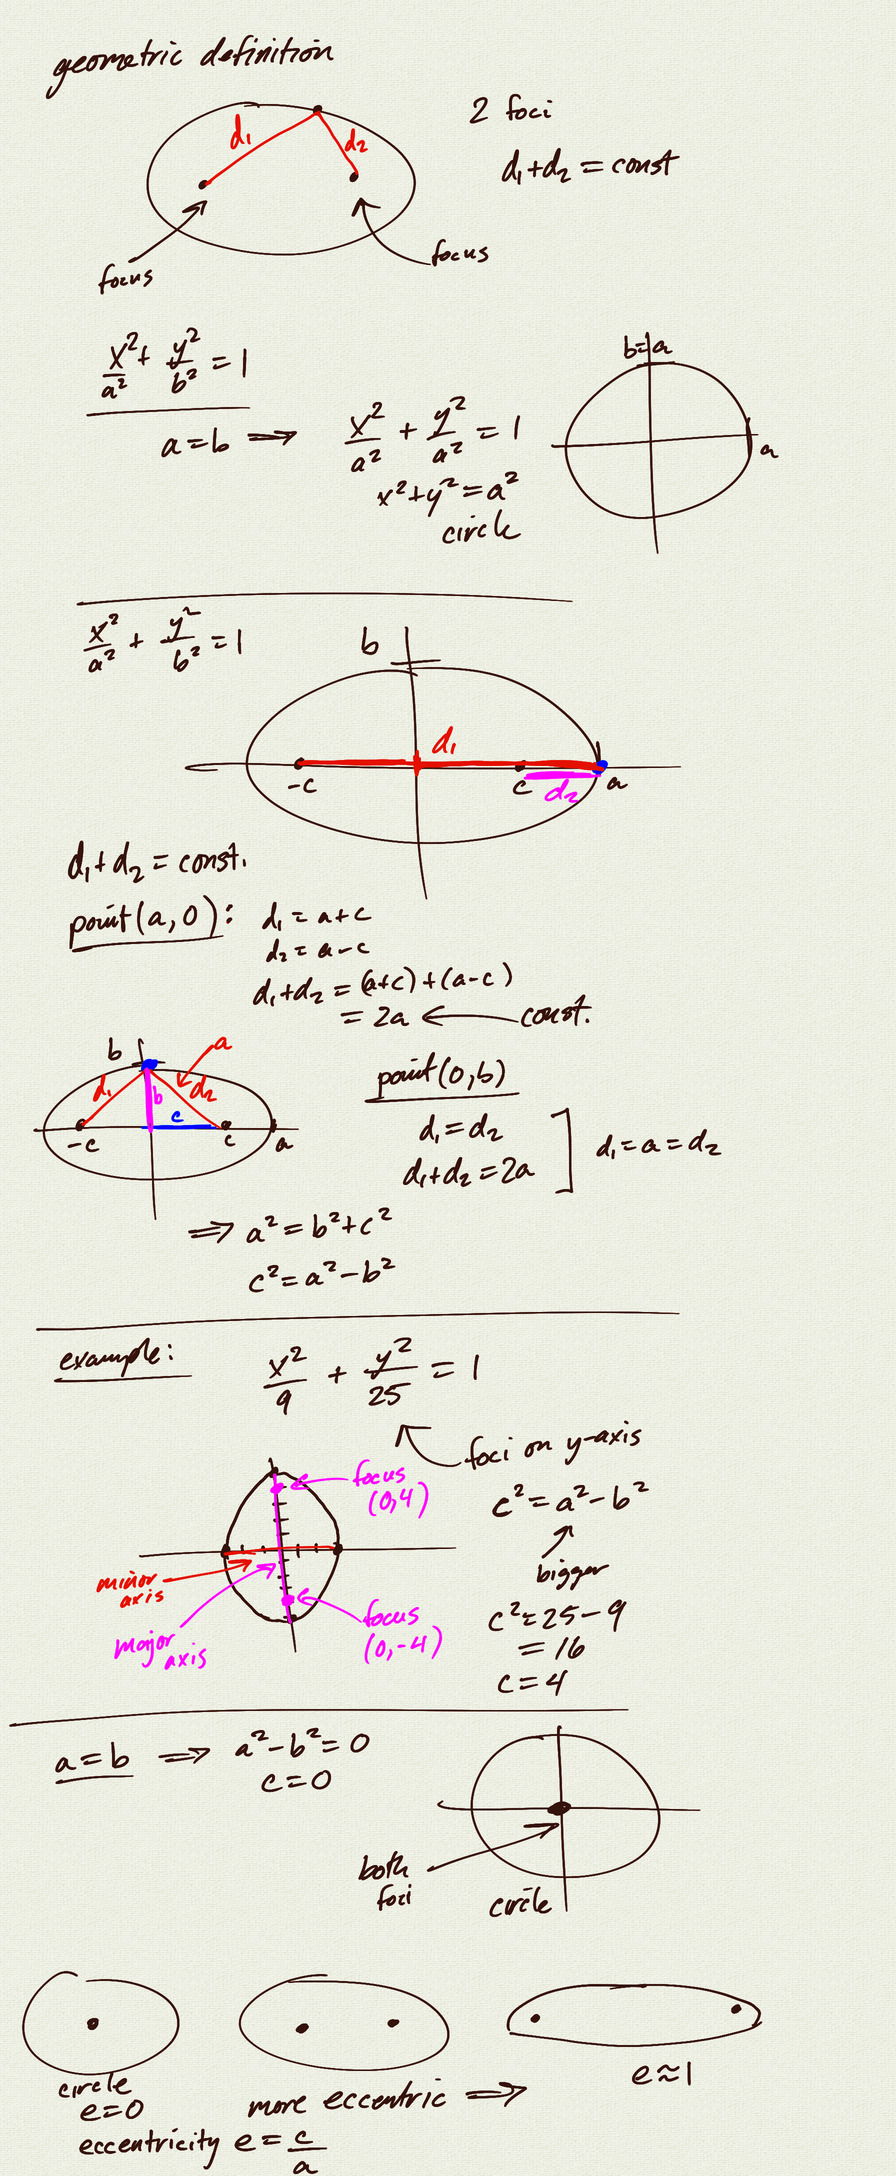 geometric definition
d₁
d₂
2 foci
d₁+d₂ = const
focus
focus
x²/a² + y²/b² = 1
b=a
a
a=b ⟹ x²/a² + y²/a² = 1
x²+y²=a²
circle
x²/a² + y²/b² = 1
b
d₁
-c
c
d₂
a
d₁+d₂ = const.
point (a,0): d₁ = a+c
d₂ = a-c
d₁+d₂ = (a+c)+(a-c)
= 2a ← const.
b
a
d₁
b
d₂
c
-c
c
a
point (0,b)
d₁=d₂
d₁+d₂=2a
] d₁=a=d₂
⟹ a²=b²+c²
c²=a²-b²
example: x²/9 + y²/25 = 1
foci on y-axis
focus
(0,4)
c²=a²-b²
bigger
minor
axis
major
axis
focus
(0,-4)
c²=25-9
= 16
c=4
a=b ⟹ a²-b²=0
c=0
both
foci
circle
circle
e=0
more eccentric ⟹
e≈1
eccentricity e = c/a